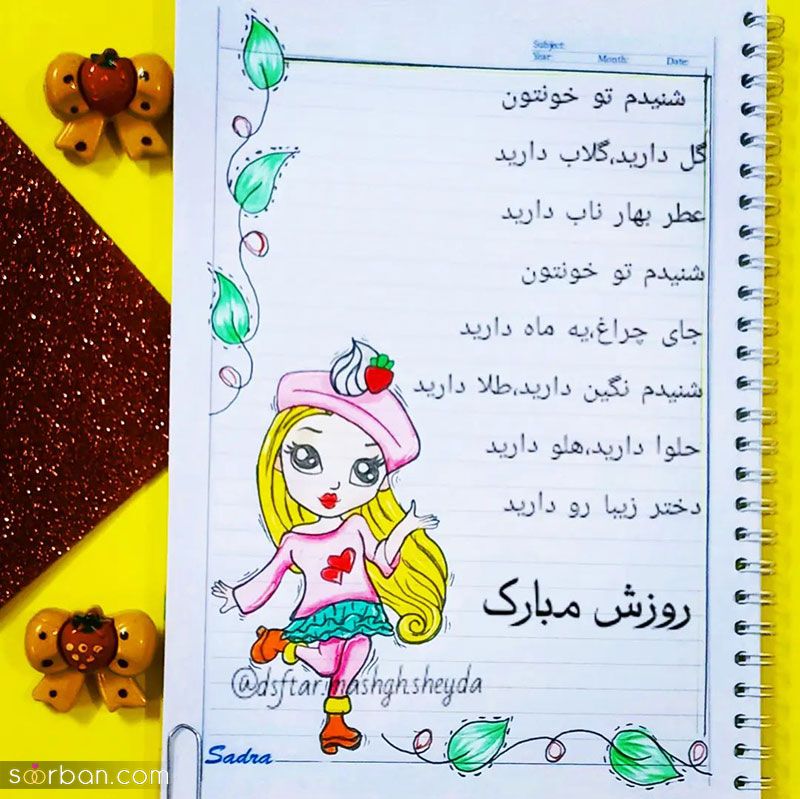 Subject:
Year: Month: Date:
شنیدم تو خونتون
گل دارید،گلاب دارید
عطر بهار ناب دارید
شنیدم تو خونتون
جای چراغ،یه ماه دارید
شنیدم نگین دارید،طلا دارید
حلوا دارید،هلو دارید
دختر زیبا رو دارید
روزش مبارک
@dsftar.mashgh.sheyda
Sadra
soorban.com